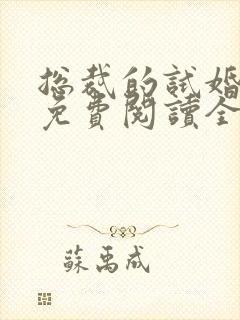 总裁的試婚
免費閱讀全
蘇禹成